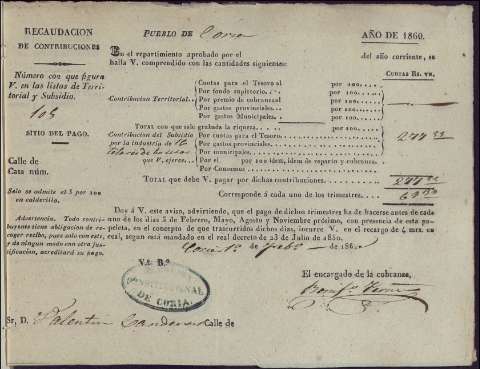 RECAUDACION
DE CONTRIBUCIONES
Número con que figura
V. en las listas de Territorial y Subsidio.
105
SITIO DEL PAGO.
Calle de
Casa núm.
Sólo se admite el 5 por 100
en calderilla.
Advertencia. Todo contribuyente tiene obligacion de recoger recibo, pues solo con este,
y de ningun modo con otra justificacion, acreditará su pago.
PUEBLO DE Coria
AÑO DE 1860.
En el repartimiento aprobado por el
del año corriente, se
halla V. comprendido con las cantidades siguientes:
CUOTAS RS. VN.
Contribucion Territorial.
Cuotas para el Tesoro al por 100
Por fondo supletorio por 100
Por premio de cobranza por 100
Por gastos provinciales por 100
Por gastos Municipales por 100
Total con que sale gravada la riqueza por 100
Contribucion del Subsidio
por la industria de
que V. ejerce.
Por cuota para el Tesoro
Por gastos provinciales
Por municipales
Por el por 100 idem, idem de reparto y cobranza
Por Consumos
TOTAL que debe V. pagar por dichas contribuciones
Corresponde á cada uno de los trimestres
Doy á V. este aviso, advirtiendo, que el pago de dichos trimestres ha de hacerse antes de cada
uno de los dias 5 de Febrero, Mayo, Agosto y Noviembre próximo, con presencia de esta papeleta, en el concepto de que trascurridos dichos dias, incurre V. en el recargo de 4 mrs. en
real, segun está mandado en el real decreto de 23 de Julio de 1850.
Coria de de 1860
V.º B.º
CONSTITUCIONAL
DE CORIA.
El encargado de la cobranza,
Sr. D. Valentin Calle de